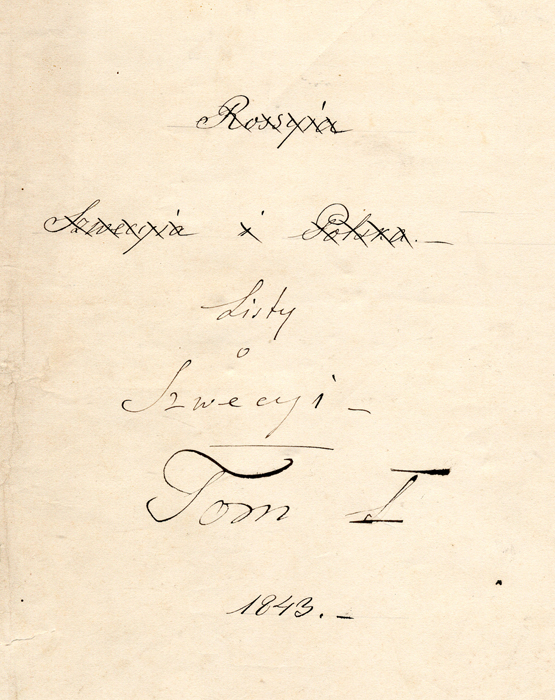 Rossyia
Szwecyia i Polska. —
Listy
o
Szwecyi —
Tom I
1843. —